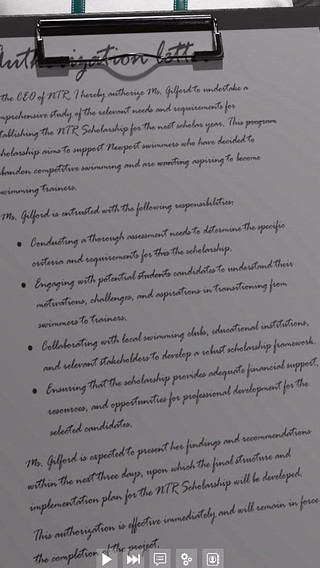 Authorization letter
the CEO of NTR, I hereby authorize Ms. Gilford to undertake a
mprehensive study of the relevant needs and requirements for
tablishing the NTR Scholarship for the next scholar year. This program
holarship aims to support Newport swimmers who have decided to
bandon competitive swimming and are wanting aspiring to become
swimming trainers.
Ms. Gilford is entrusted with the following responsibilities:
• Conducting a thorough assessment needs to determine the specific
criteria and requirements for this the scholarship.
• Engaging with potential students candidates to understand their
motivations, challenges, and aspirations in transitioning from
swimmers to trainers.
• Collaborating with local swimming clubs, educational institutions,
and relevant stakeholders to develop a robust scholarship framework.
• Ensuring that the scholarship provides adequate financial support,
resources, and opportunities for professional development for the
selected candidates.
Ms. Gilford is expected to present her findings and recommendations
within the next three days, upon which the final structure and
implementation plan for the NTR Scholarship will be developed.
This authorization is effective immediately and will remain in force
the completion of the project.